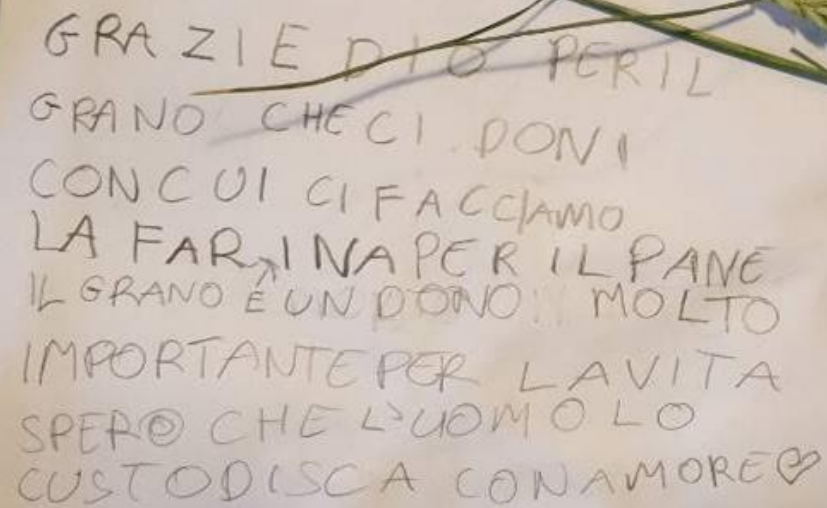 GRAZIE DIO PER IL
GRANO CHE CI DONI
CON CUI CI FACCIAMO
LA FARINA PER IL PANE
IL GRANO É UN DONO MOLTO
IMPORTANTE PER LA VITA
SPERO CHE L'UOMO LO
CUSTODISCA CON AMORE♡